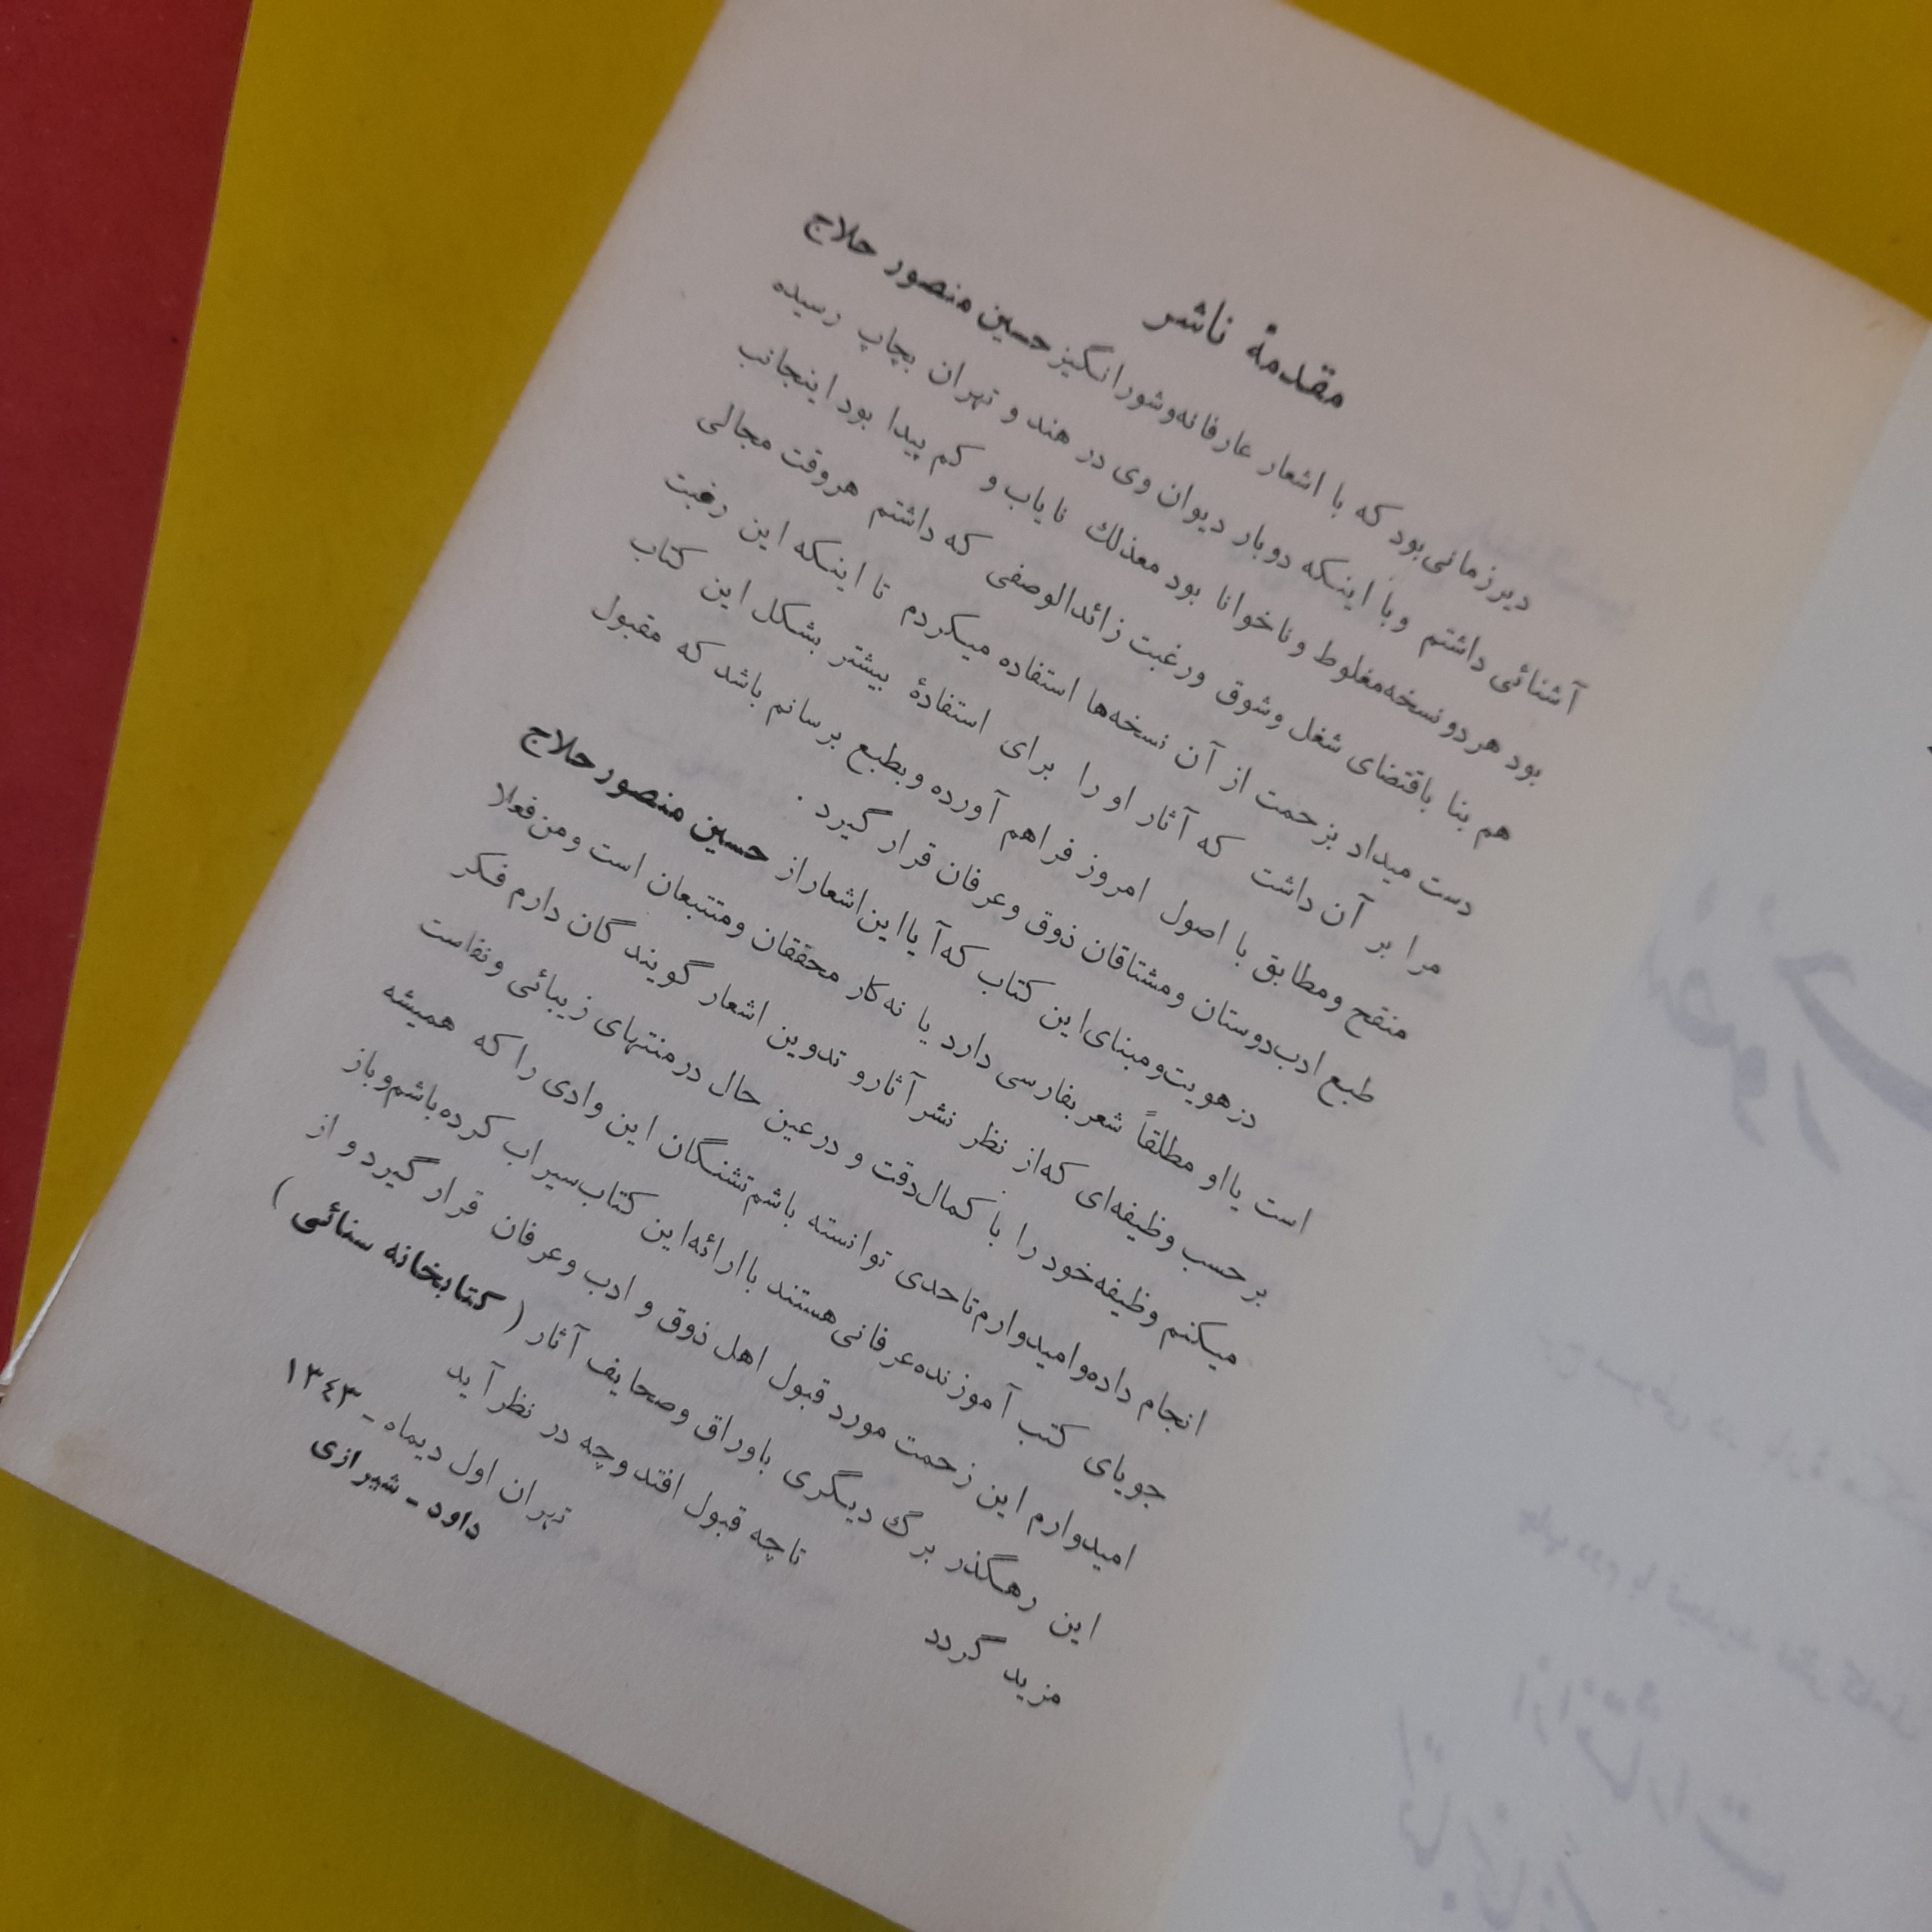 مقدمهٔ ناشر
دیر زمانی بود که با اشعار عارفانه و شورانگیز حسین منصور حلاج
آشنائی داشتم و با اینکه دوبار دیوان وی در هند و تهران بچاپ رسیده
بود هر دو نسخه مغلوط و ناخوانا بود معذلك نایاب و کم پیدا بود اینجانب
هم بنا باقتضای شغل و شوق و رغبت زائدالوصفی که داشتم هر وقت مجالی
دست میداد بزحمت از آن نسخه‌ها استفاده میکردم تا اینکه این رغبت
مرا بر آن داشت که آثار او را برای استفادهٔ بیشتر بشکل این کتاب
منقح و مطابق با اصول امروز فراهم آورده و بطبع برسانم باشد که مقبول
طبع ادب‌دوستان و مشتاقان ذوق و عرفان قرار گیرد .
در هویت و مبنای این کتاب که آیا این اشعار از حسین منصور حلاج
است یا او مطلقاً شعر بفارسی دارد یا نه کار محققان و متتبعان است و من فعلا
بر حسب وظیفه‌ای که از نظر نشر آثار و تدوین اشعار گویندگان دارم فکر
میکنم وظیفه خود را با کمال دقت و در عین حال در منتهای زیبائی و نفاست
انجام داده و امیدوارم تا حدی توانسته باشم تشنگان این وادی را که همیشه
جویای کتب آموزنده عرفانی هستند با ارائه این کتاب سیراب کرده باشم و باز
امیدوارم این زحمت مورد قبول اهل ذوق و ادب و عرفان قرار گیرد و از
این رهگذر برگ دیگری باوراق و صحایف آثار ( کتابخانه سنائی )
مزید گردد
تا چه قبول افتد و چه در نظر آید
تهران اول دیماه - ۱۳٤۳
داود - شیرازی